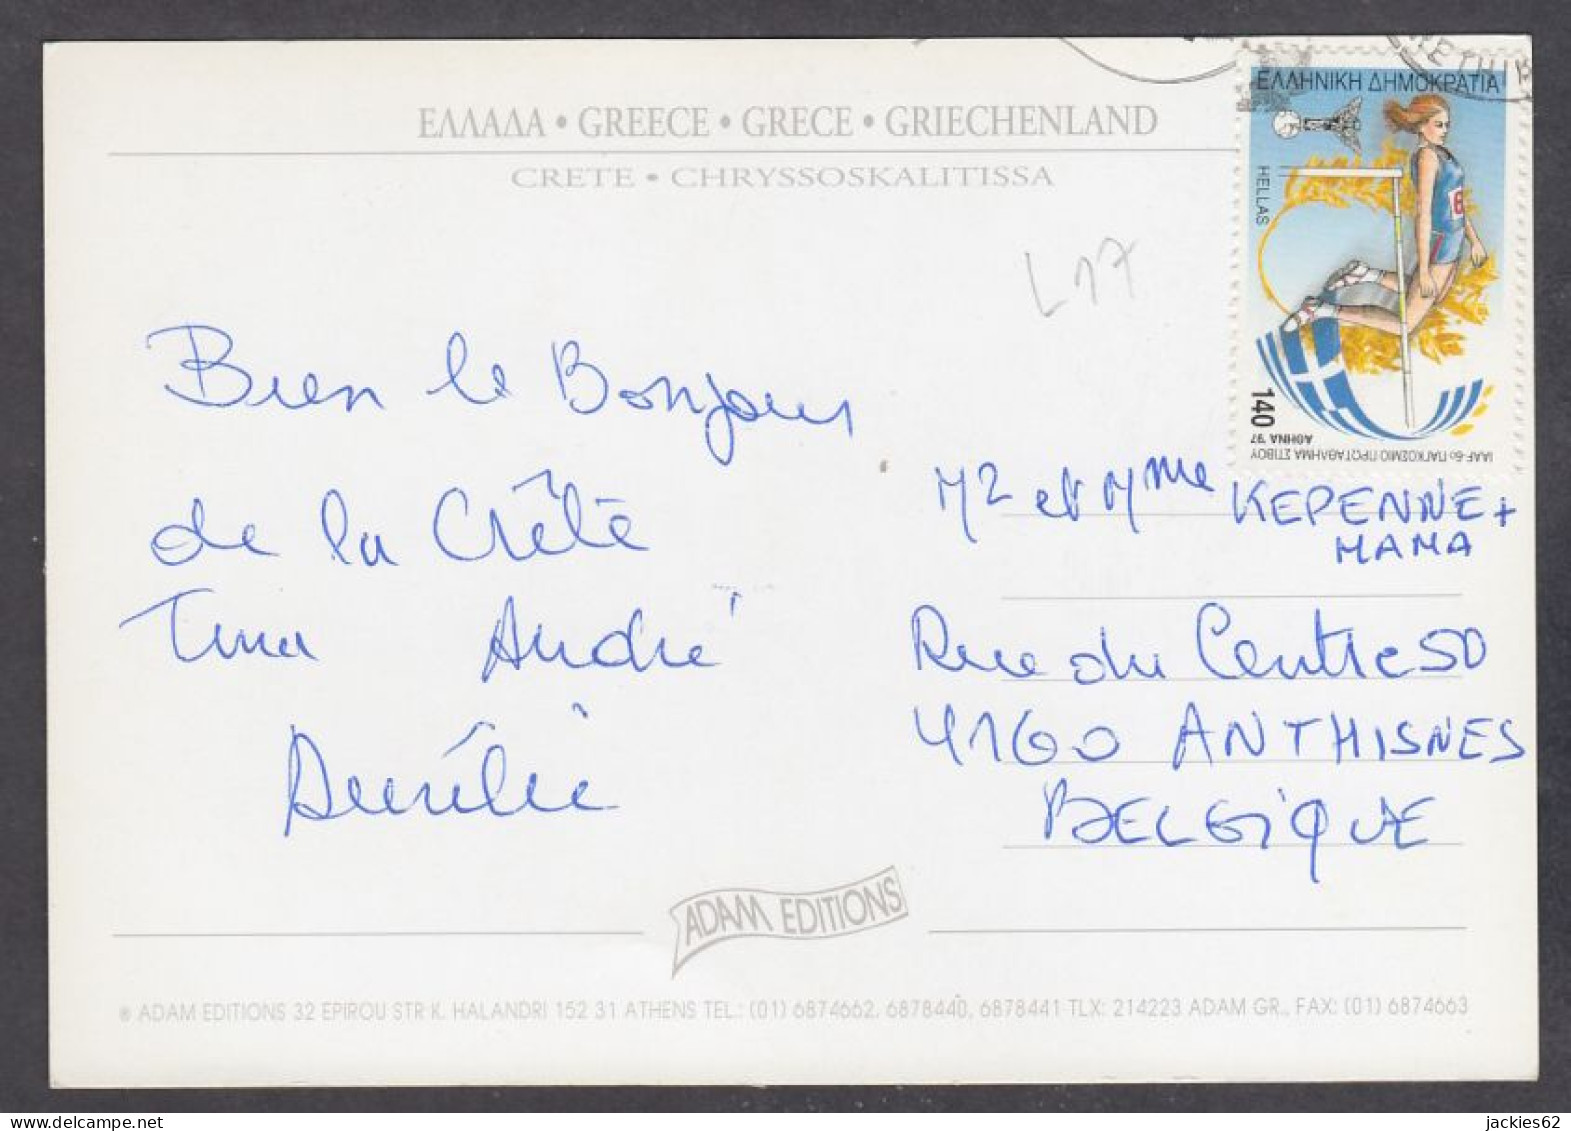 ΕΛΛΑΔΑ • GREECE • GRECE • GRIECHENLAND
CRETE • CHRYSSOSKALITISSA
ΕΛΛΗΝΙΚΗ ΔΗΜΟΚΡΑΤΙΑ
HELLAS
140
ΑΘΗΝΑ '97
IAAF-6ο ΠΑΓΚΟΣΜΙΟ ΠΡΩΤΑΘΛΗΜΑ ΣΤΙΒΟΥ
L17
Bien le Bonjour
de la Crète
Tina André
Aurélie
Mr et Mme KEPENNE +
MAMA
Rue du Centre 50
4160 ANTHISNES
BELGIQUE
ADAM EDITIONS
® ADAM EDITIONS 32 EPIROU STR K. HALANDRI 152 31 ATHENS TEL.: (01) 6874662, 6878440, 6878441 TLX: 214223 ADAM GR., FAX: (01) 6874663
jackies62